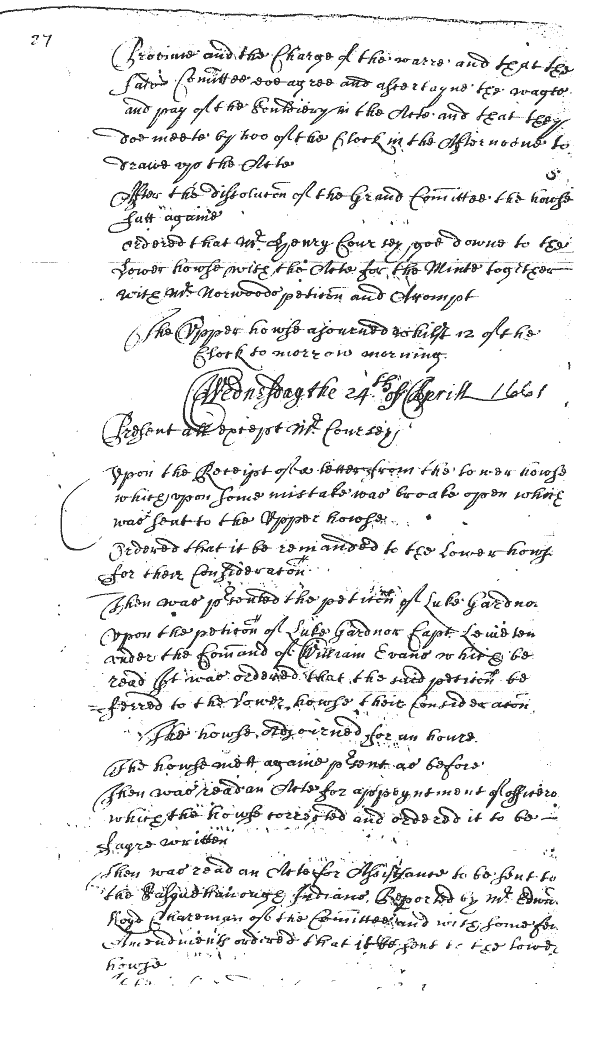 27
Provinie and the Charge of the warre and that the
said Comittee doe agree and assertayne the wages
and pay of the Souldiery in the Acte and that they
doe meete by two of the Clock in the Afternoone to
drawe upp the Acte
After the dissoluton of the Grand Comittee the howse
satt againe
Ordered that Mr. Henry Coursey goe downe to the
Lower howse with the Acte for the Minte together
with Mr. Norwoods peticon and Attempt
The Upper howse ajourned whilst 12 of the
Clock to morrow morning.
Wednesday the 24th of Aprill 1661
Present all except Mr. Coursey
Upon the Receipt of a letter from the lower howse
which upon some mistake was broake open which
was sent to the Upper howse
Ordered that it be remanded to the Lower hows
for their Consideraton
Then was prsented the peticon of Luke Gardnor
Upon the peticon of Luke Gardnor Capt Leiueten
under the Comand of William Evans which be
read It was ordered that the said peticon be
=ferred to the Lower howse their Consideraton
The howse Adjourned for an houre
The howse mett againe prsent as before
Then was read an Acte for appoyntment of officers
which the howse corrected and ordered it to be —
fayre written
Then was read an Acte for Assistance to be sent to
the Sasquehanough Indians Reported by Mr. Edwar
Lloyd Chareman of the Comittee and with some few
Amendments ordered that it be sent to the Lower
howse